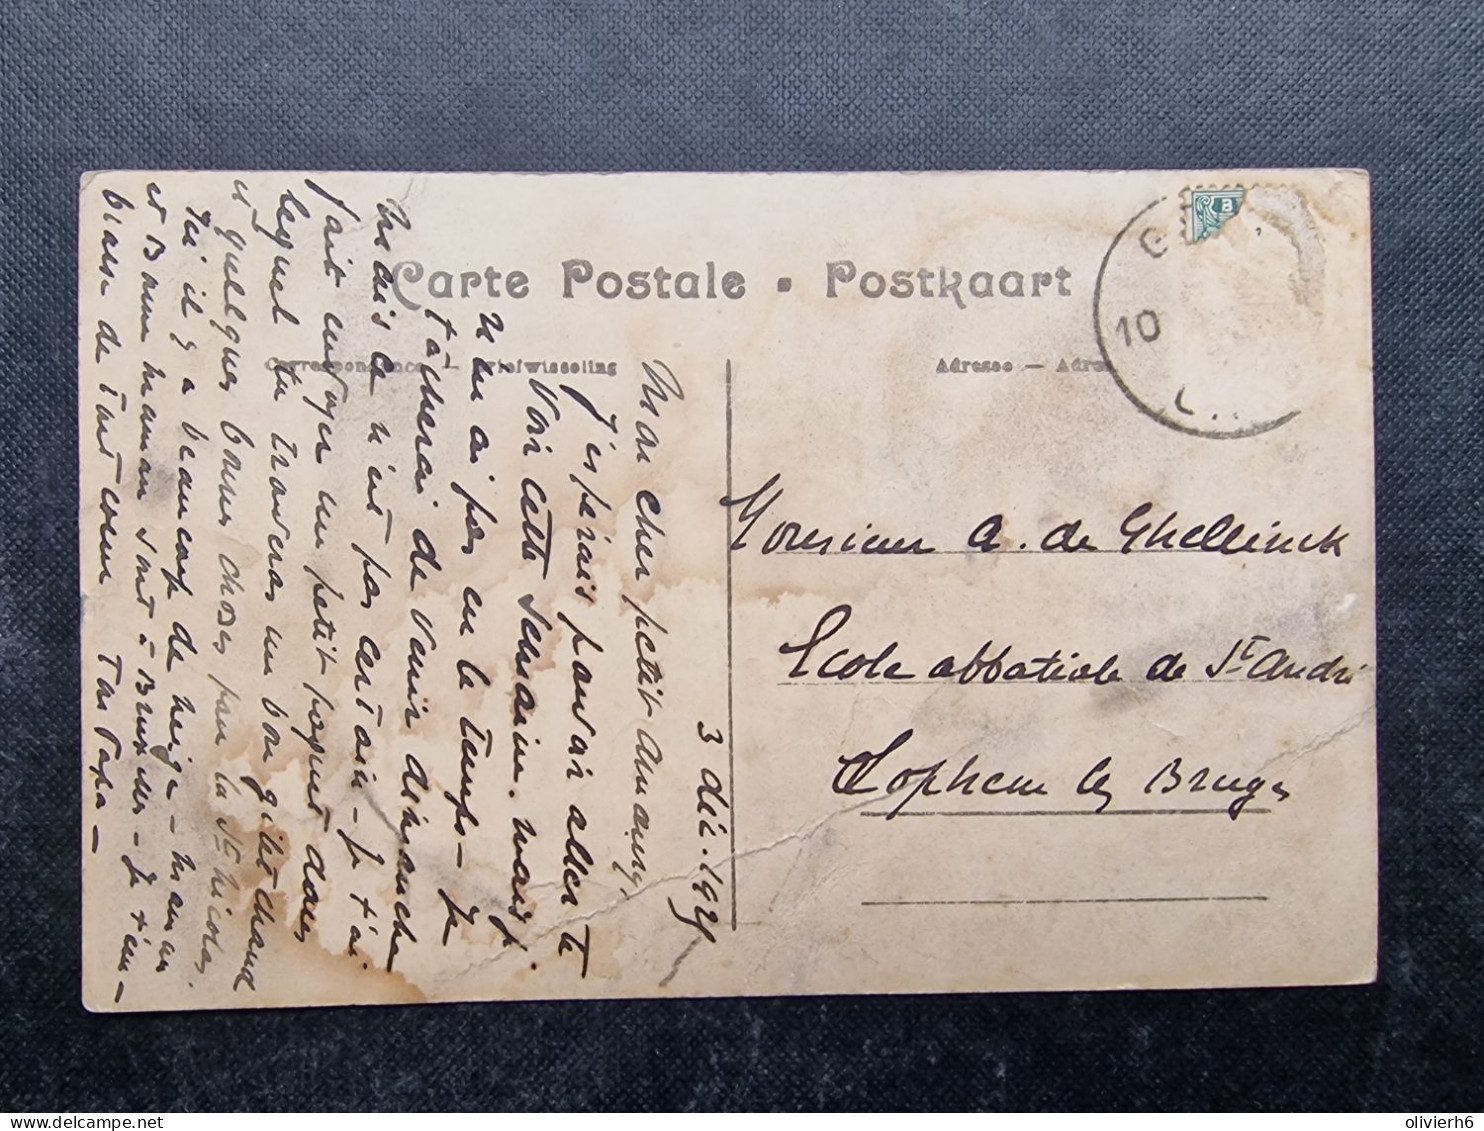 Carte Postale • Postkaart
Correspondance — Briefwisseling
Adresse — Adres
10
3 déc. 1921
Mon cher petit Amaury,
J'espérais pouvoir aller te
voir cette semaine. mais j.
n'en ai pas eu le temps — Je
tâcherai de venir dimanche
mais ce n'est pas certain — Je t'ai
fait envoyer un petit paquet dans
lequel tu trouveras un bon gilet chaud
et quelques bonnes choses pour la St Nicolas.
Ici il y a beaucoup de neige — maman
et Bonne maman sont à Bruxelles — Je t'em-
brasse de tout coeur Ton Papa —
Monsieur A. de Ghellinck
Ecole abbatiale de St André
Lophem lez Bruges
olivierh6